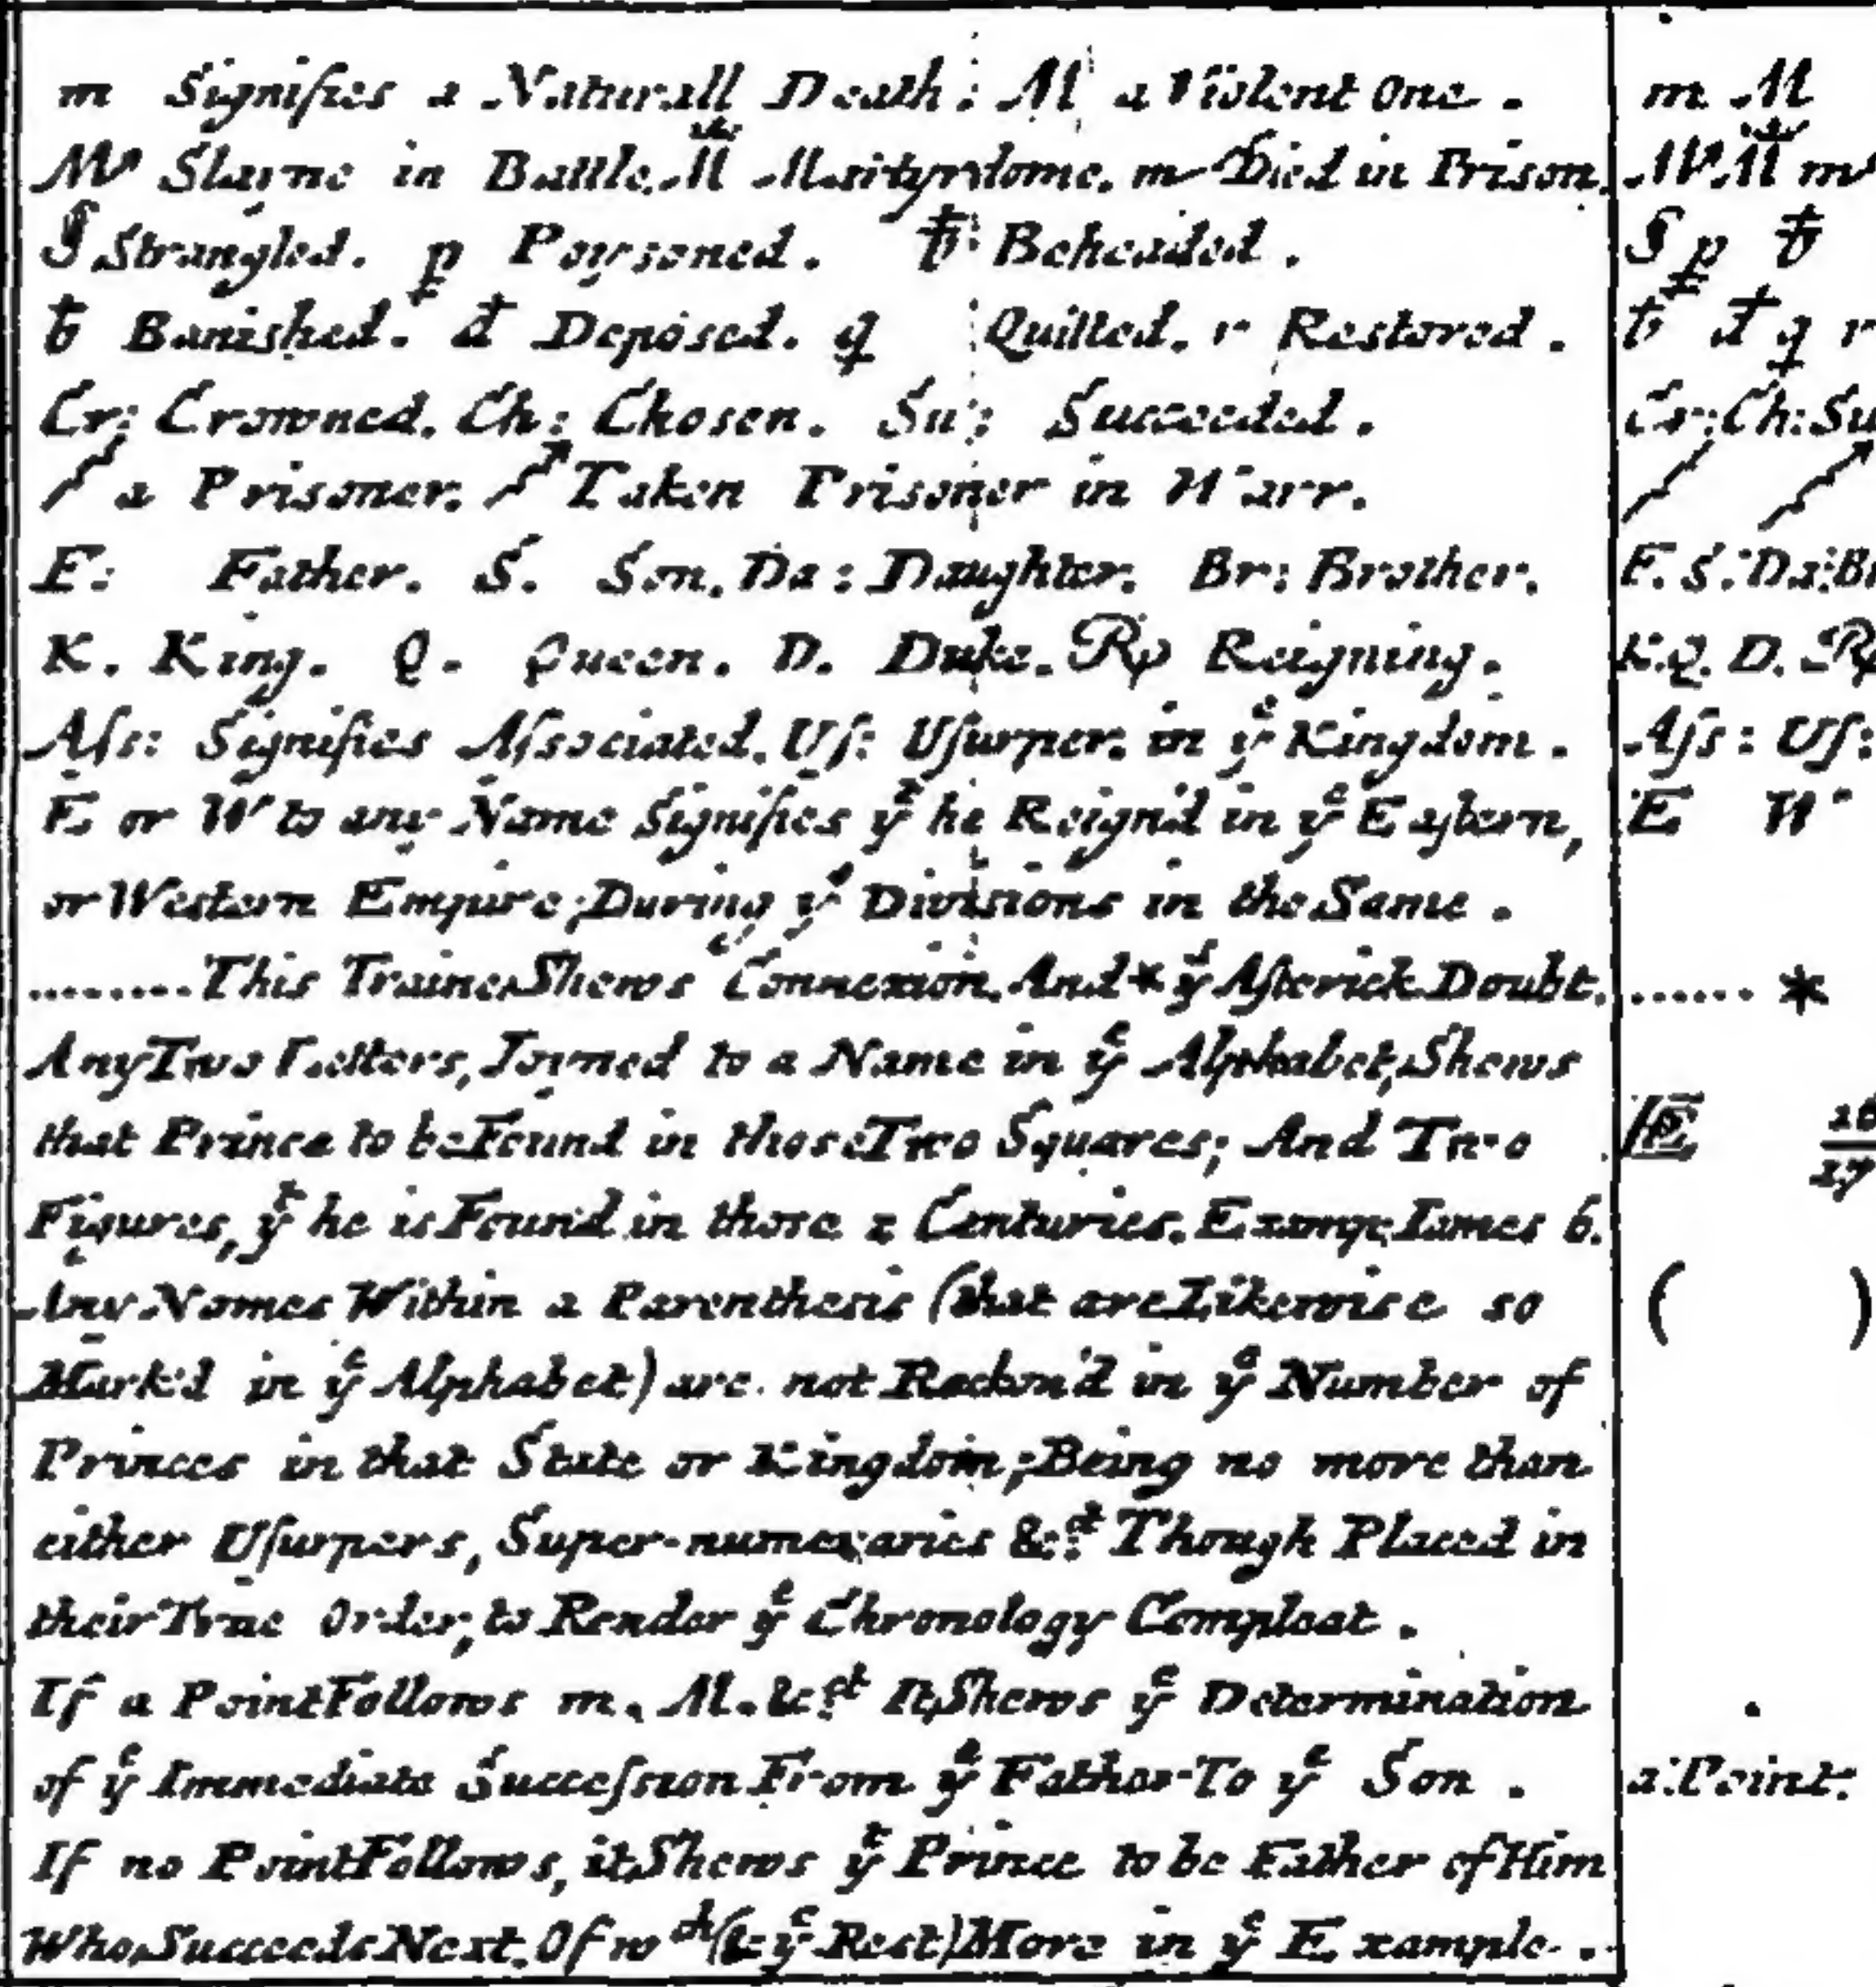 m Signifies a Naturall Death: M a Violent One. m M
M Slayne in Battle. M Martyrdome. m Died in Prison. M M m
S Strangled. p Poysoned. b: Beheaded. S p b
b Banished. d Deposed. q Quitted. r Restored. b d q r
Cr: Crowned. Ch: Chosen. Su: Succeeded. Cr: Ch: Su
a Prisoner. Taken Prisoner in Warr.
F: Father. S. Son. Da: Daughter. Br: Brother. F. S. Da: Br
K. King. Q. Queen. D. Duke. Rp Reigning. K. Q. D. Rp
Aſs: Signifies Aſsociated. Uſ: Uſurper. in yͤ Kingdom. Aſs: Uſ:
E or W to any Name Signifies yͭ he Reign'd in yͤ Eaſtern, E W
or Western Empire; During yͤ Divisions in the Same.
........ This Traine Shews Connexion. And * yͤ Aſterick Doubt. ...... *
Any Two Letters, Joyned to a Name in yͤ Alphabet, Shews
that Prince to be Found in those Two Squares; And Two 16
Figures, yͭ he is Found in those 2 Centuries. Examp. Iames 6. 17
Any Names Within a Parenthesis (that are Likewise so ( )
Mark'd in yͤ Alphabet) are not Reckon'd in yͤ Number of
Princes in that State or Kingdom; Being no more than
either Uſurpers, Super-numeraries &c.ͭ Though Placed in
their True Order, to Render yͤ Chronology Compleat.
If a Point Follows m. M. &c.ͭ It Shews yͤ Determination .
of yͤ Immediate Succeſsion From yͤ Father To yͤ Son. a Point.
If no Point Follows, it Shews yͭ Prince to be Father of Him
Who Succeeds Next. Of wᶜʰ (& yͤ Rest) More in yͤ Example.